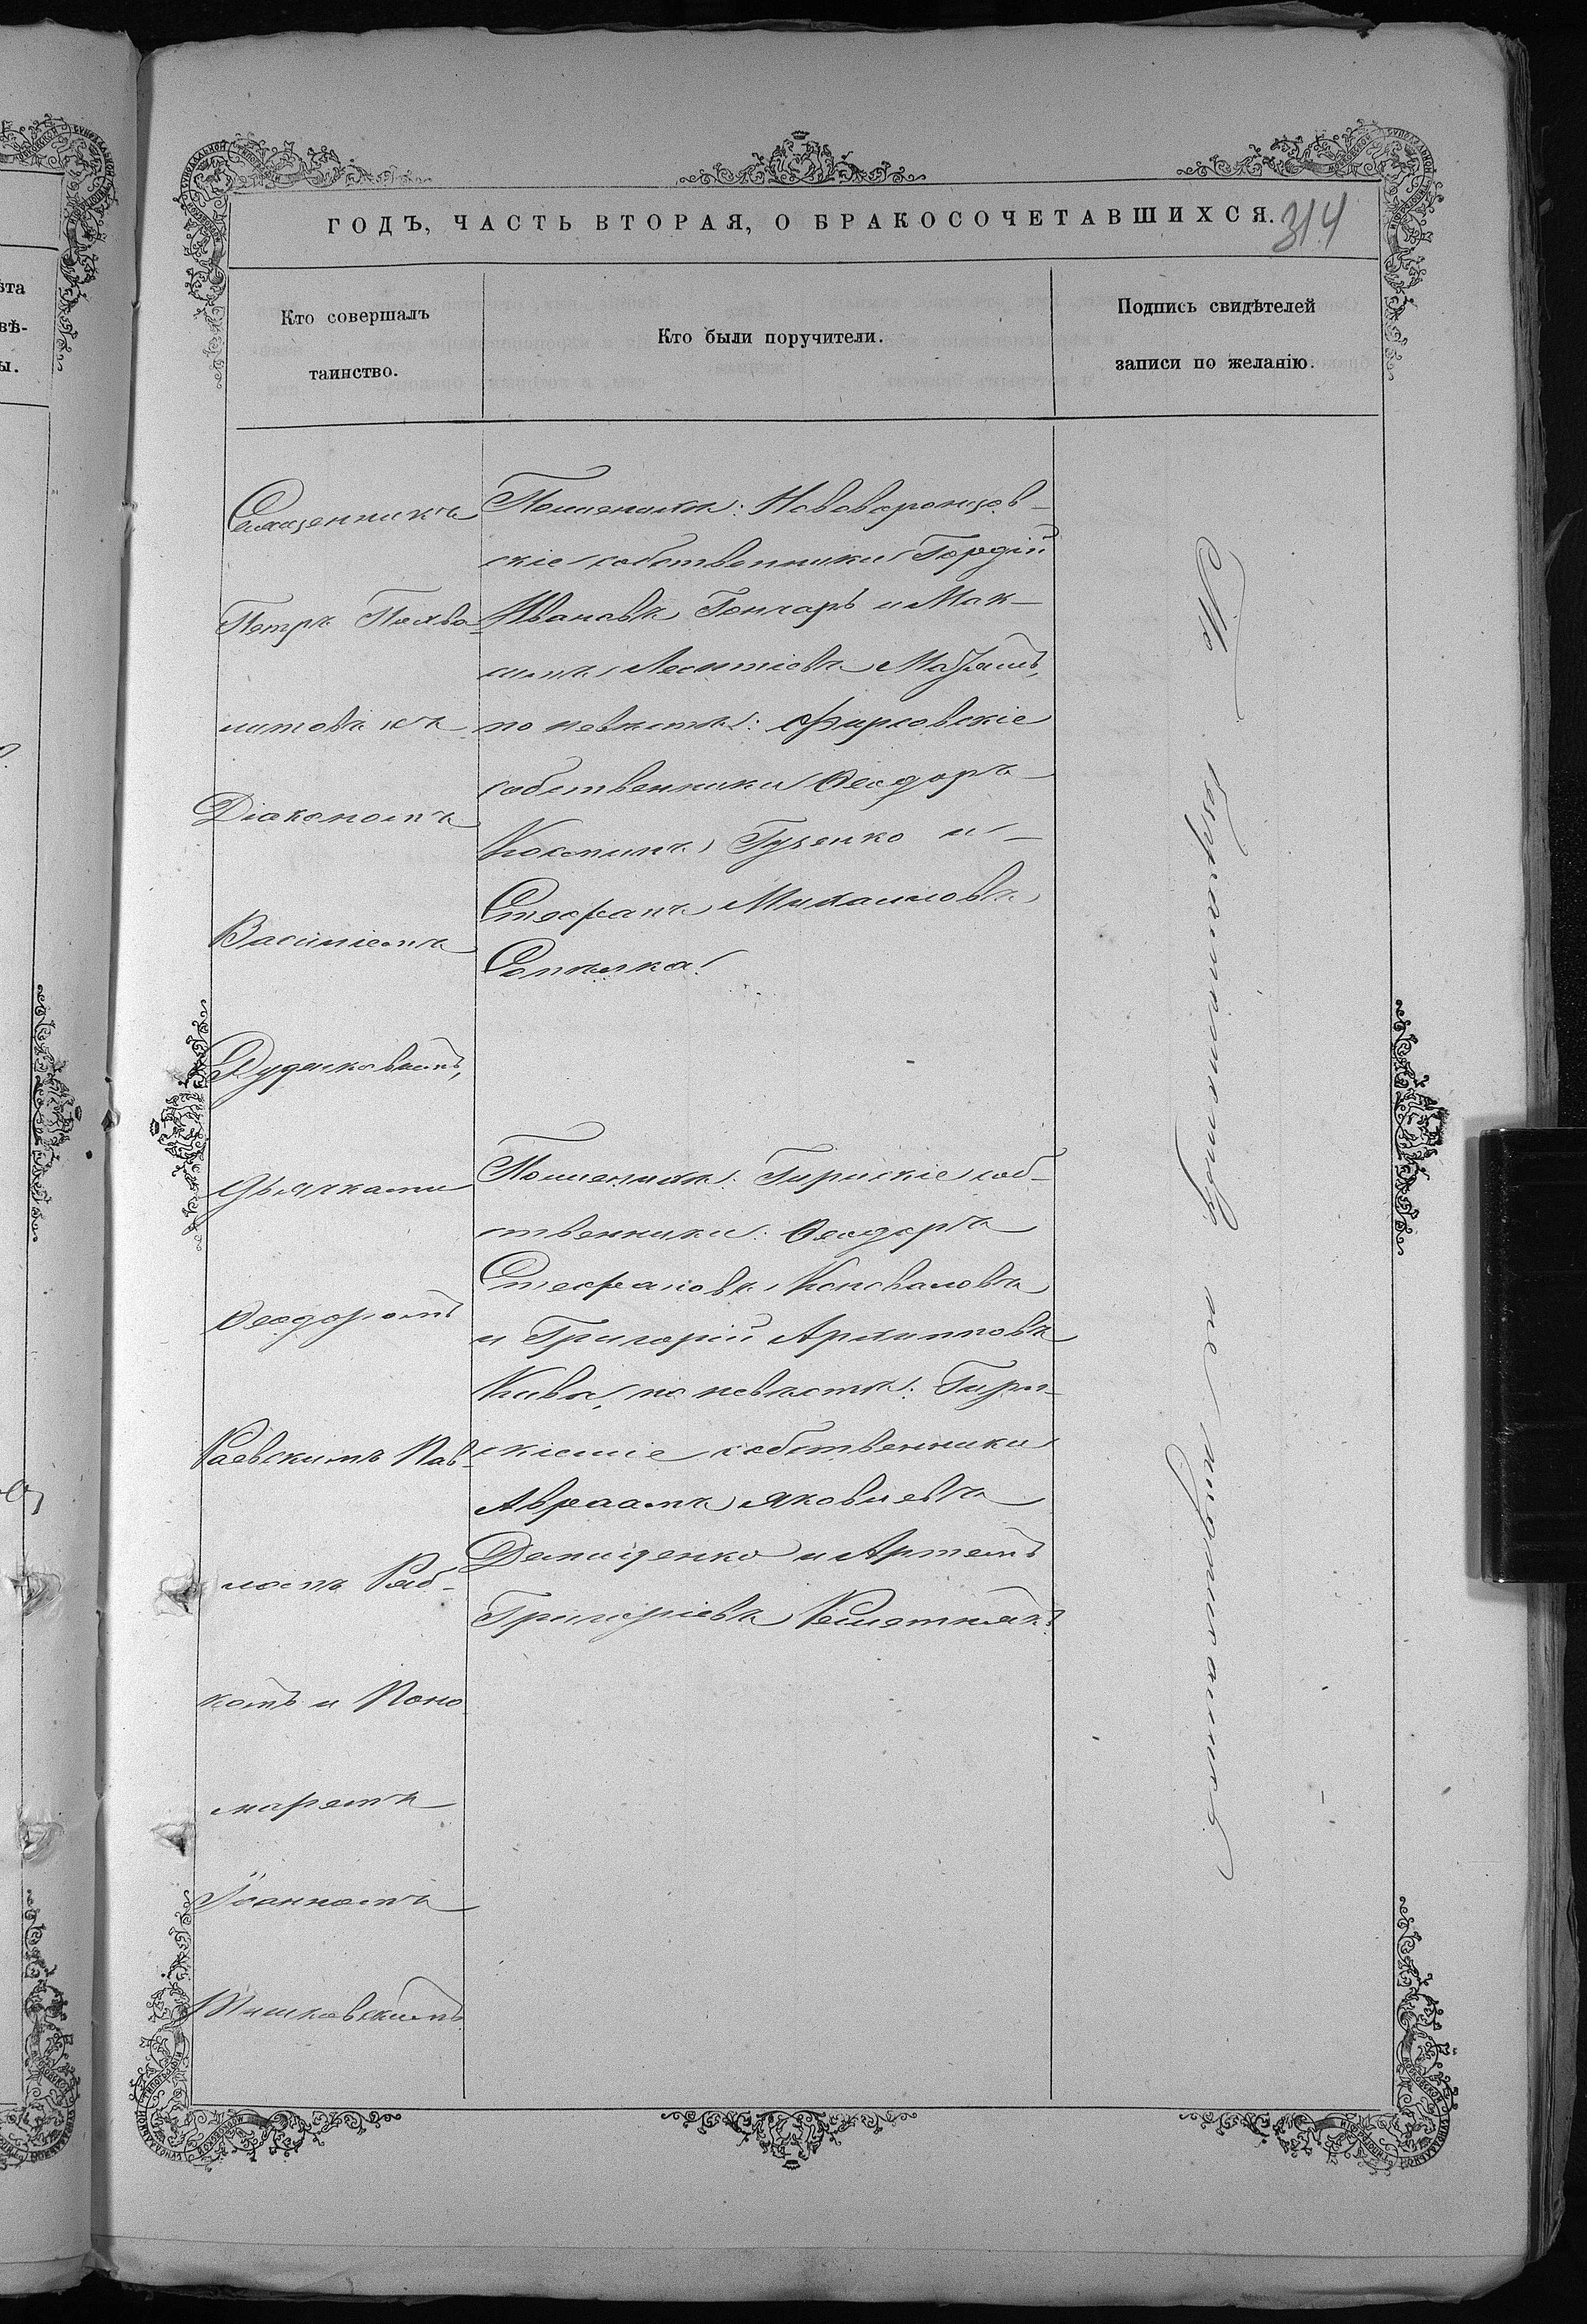 ГОДЪ, ЧАСТЬ ВТОРАЯ, О БРАКОСОЧЕТАВШИХСЯ.
314
Кто совершалъ
таинство.
Кто были поручители.
Подпись свидѣтелей
записи по желанію.
Священникъ
Петръ Похва-
литовъ съ
Діакономъ
Василіемъ
Дудиковымъ,
Дьячками
Ѳеодоромъ
Раевскимъ Пав-
ломъ Ряб-
комъ и Поно-
маремъ
Іоанномъ
Тишковскимъ
По женихѣ: Нововоронцов-
скіе собственники Гордій
Ивановъ Гончаръ и Мак-
симъ Леонтіевъ
по невѣстѣ: Фирсовскіе
собственники Ѳеодоръ
Косминъ Гузенко и
Стефанъ Михаиловъ
Сопѣлка.
По женихѣ: Гирискіе соб-
ственники: Ѳеодоръ
Стефановъ Коноваловъ
и Григорій Архиповъ
Кива, по невѣстѣ: Гири-
собственники
Авраамъ Яковлевъ
Демиденко и Артемъ
Григоріевъ Решетнякъ.